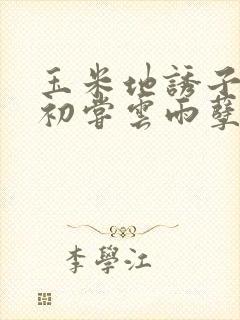 玉米地誘子
初嘗雲雨孽
李學江